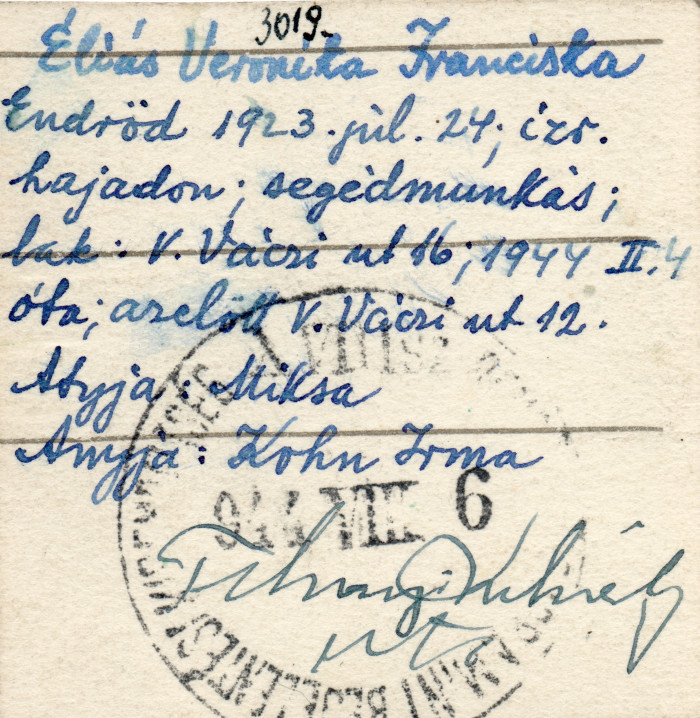 3019.
Éliás Veronika Franciska
Endröd 1923. júl. 24; izr.
hajadon; segédmunkás;
lak: V. Váczi ut 16; 1944 II. 4
óta; azelőtt V. Váczi ut 12.
Atyja: Miksa
Anyja: Kohn Irma
944 VIII 6